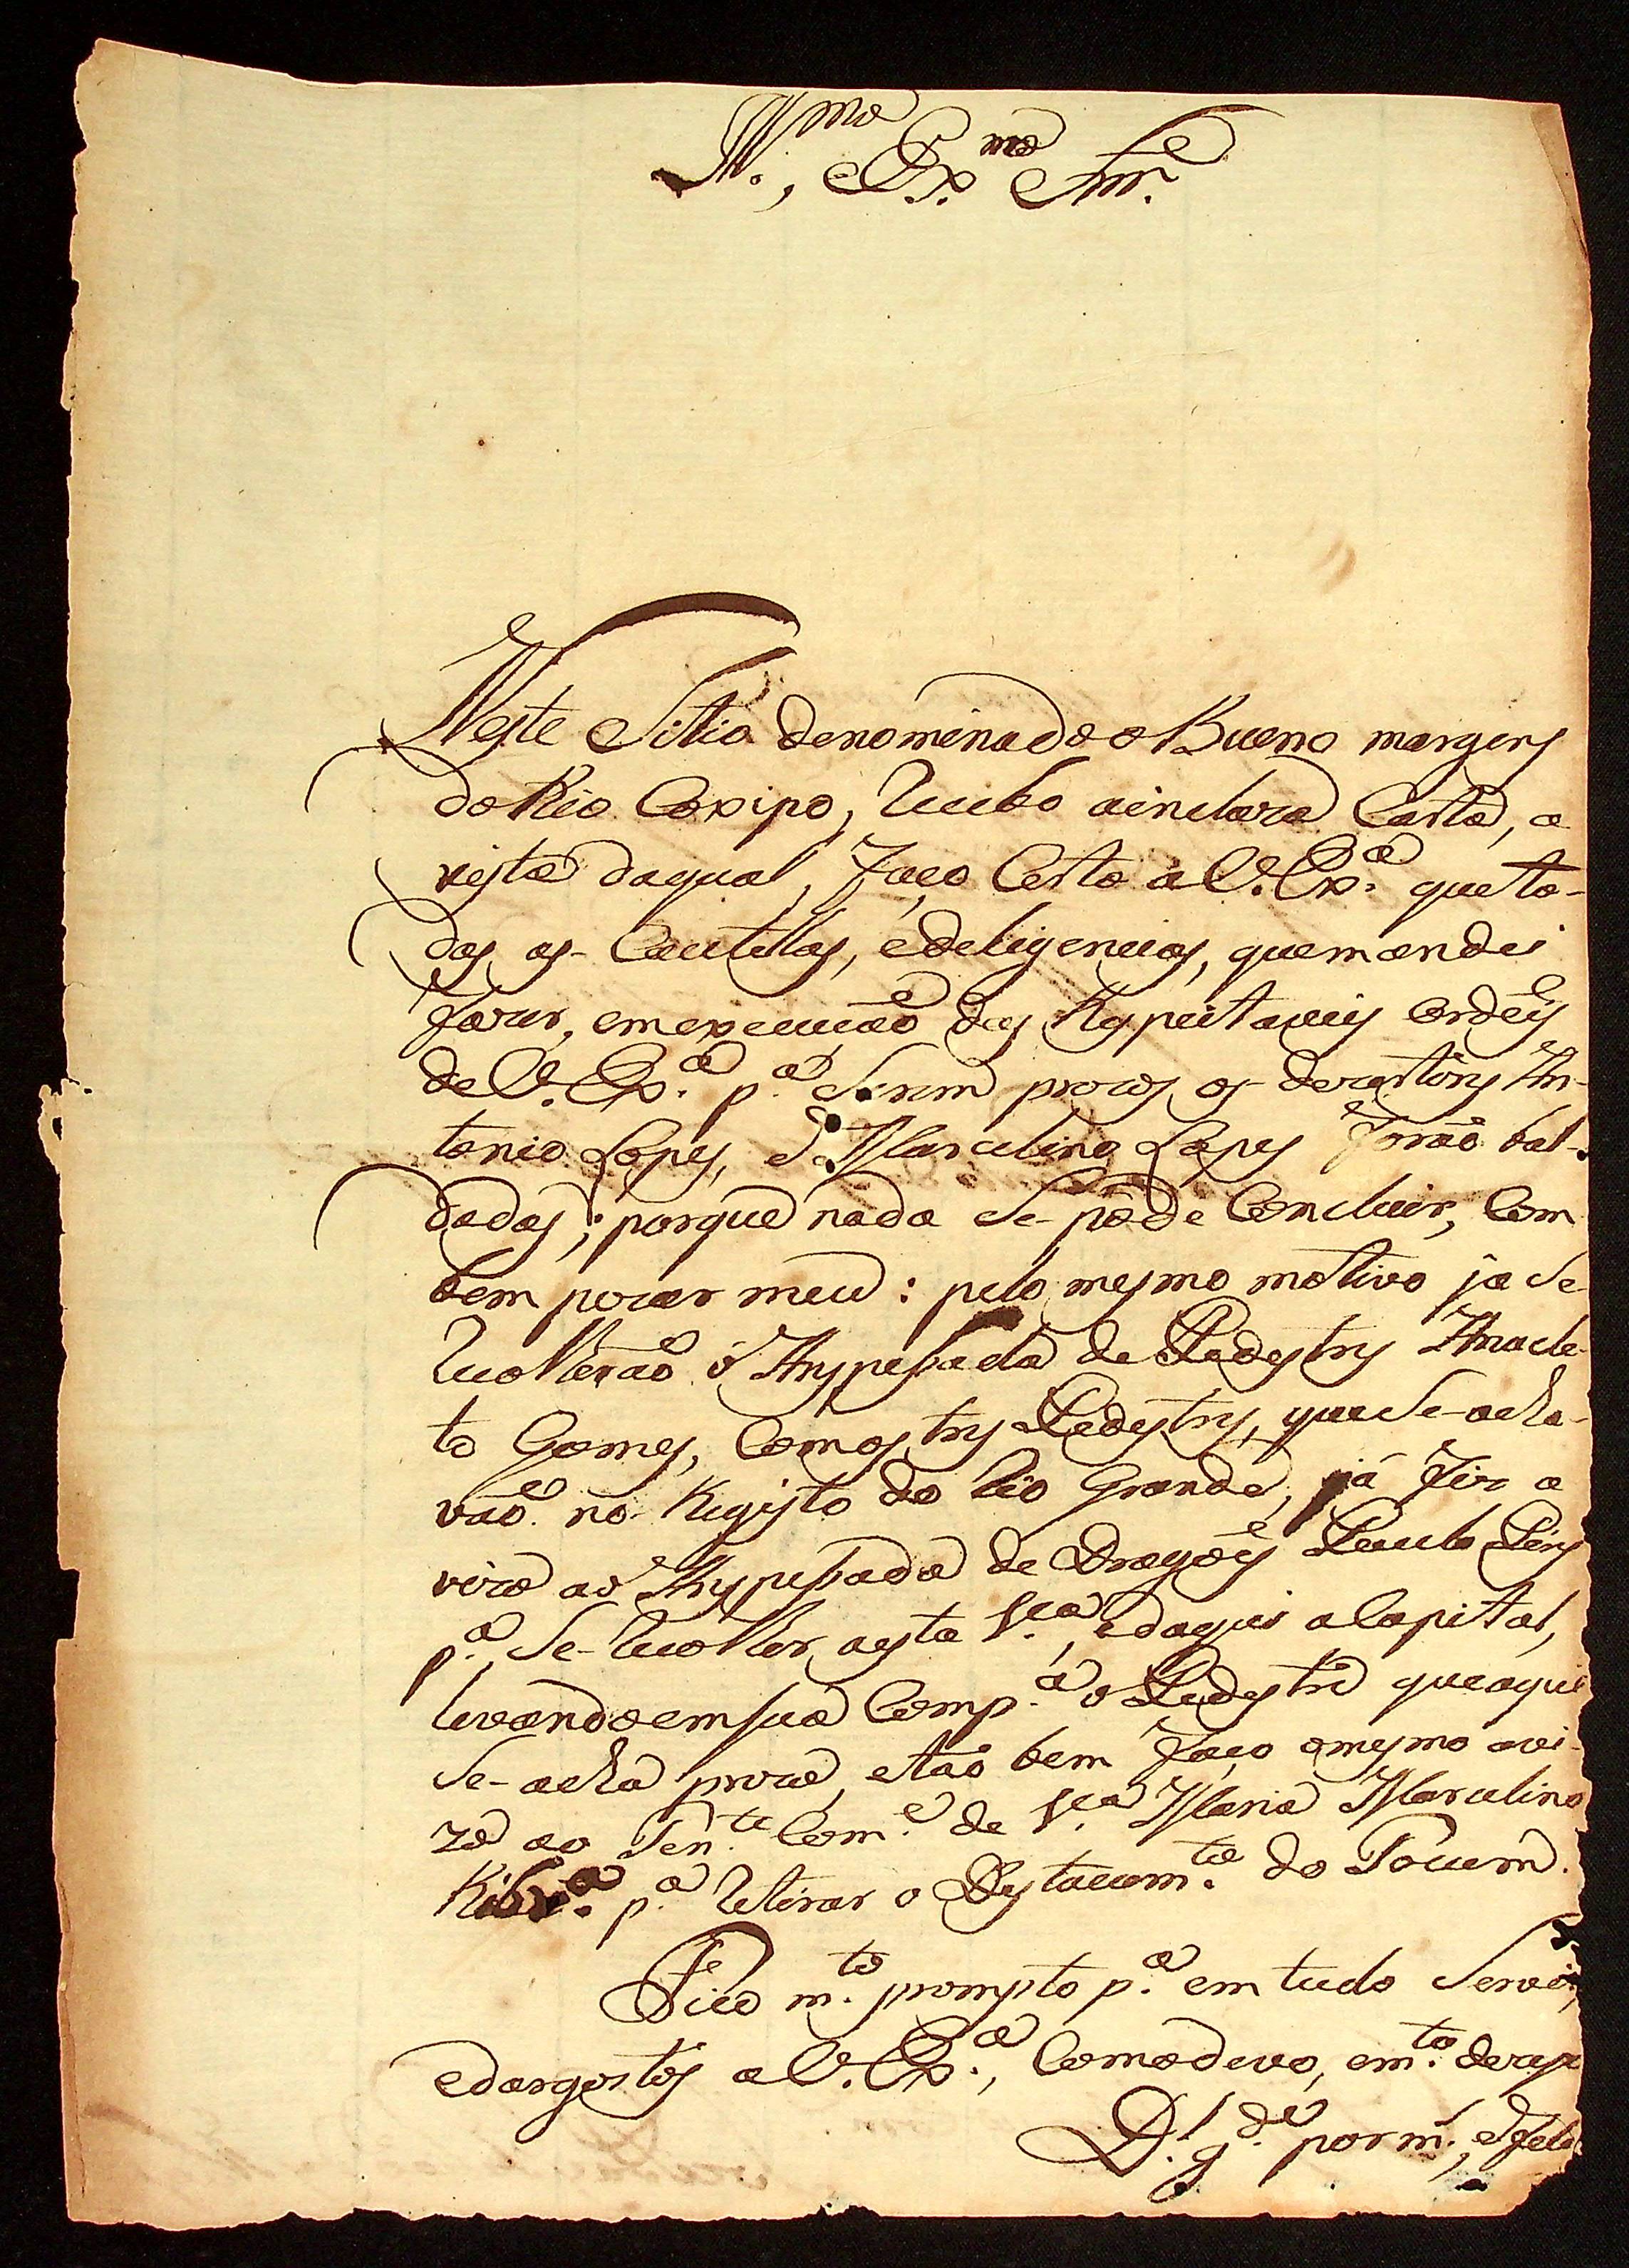 Ill.mo, Ex.mo Snr.
Neste Sitio denominado o Bueno margens
do Rio Coxipo, recebo a incluza Carta, a
vista da qual, faço Certo a V. Ex.a que to-
das as Cautellas, e deligencias, que mandei
fazer, em execução das Respeitaveis ordẽis
de V. Ex.a p.a Serem prezos os dezertores An-
tonio Lopes, e Marcelino Lopes forão bal-
dadas; porque nada Se-pode Concluir, Com
bem pezar meu: pelo mesmo motivo ja Se-
recolherão o Anspessada de Pedestres Anacle-
to Gomes, Com os tres Pedestres, que Se-acha-
vão no Registo do Rio Grande, já fiz a
vizo ao Anspessada de Dragoẽs Paulo Pires
p.a Se-recolher a esta V.a, e daqui a Capital,
levando em sua Comp.a o Pedestre que aqui
Se-acha prezo, e tão bem faço o mesmo avi-
zo ao Ten.te Com.e de V.a Maria Marcelino
Ribr.o p.a retirar o Destacam.to do Tocum.
Fico m.to prompto p.a em tudo Servir,
e dar gostos a V. Ex.a, Como devo, e m.to dezejo
D.s g.de por m.s, e feli